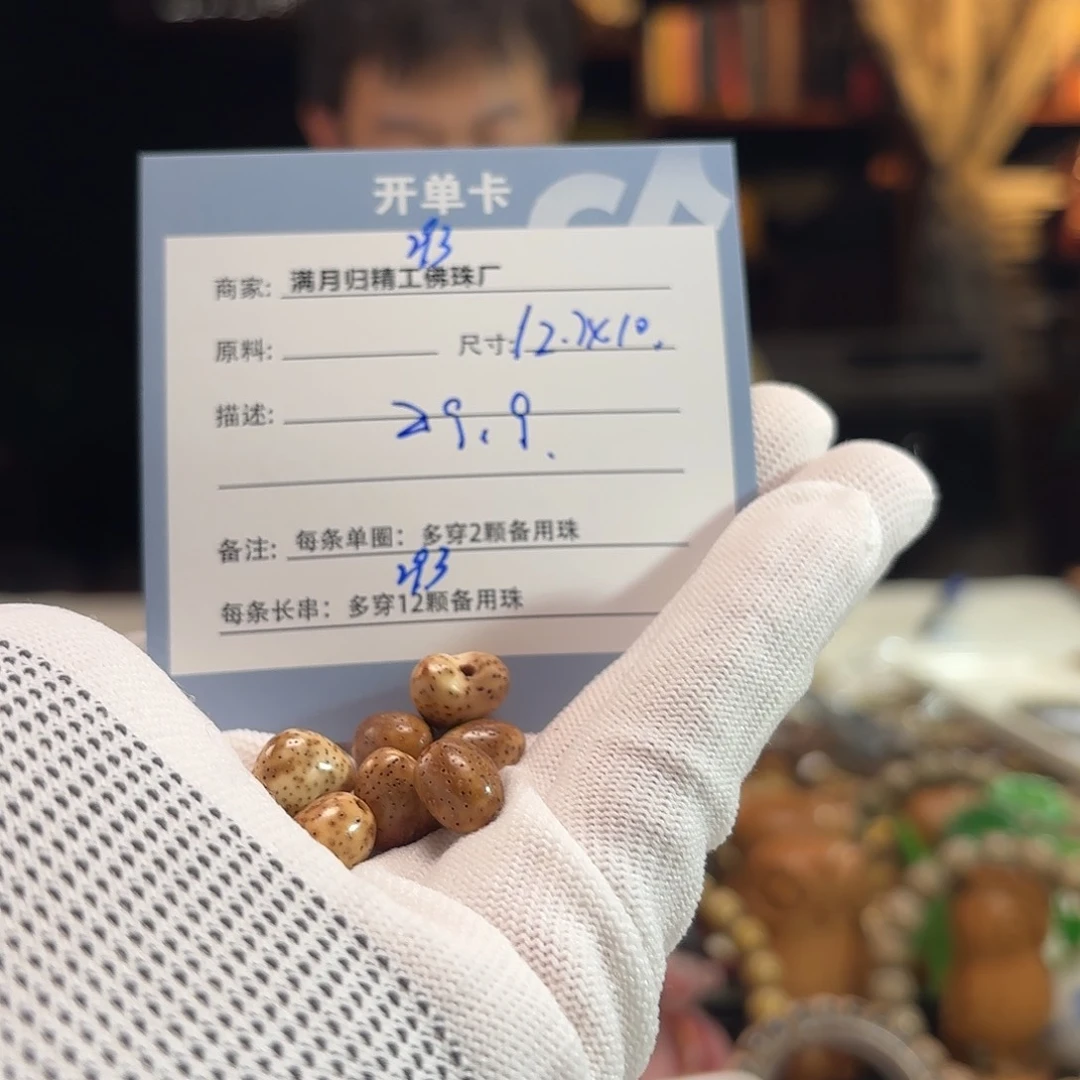 开单卡
293
商家: 满月归精工佛珠厂
原料: 尺寸: 12.7×10.
描述: 29.9.
备注: 每条单圈：多穿2颗备用珠
293
每条长串：多穿12颗备用珠